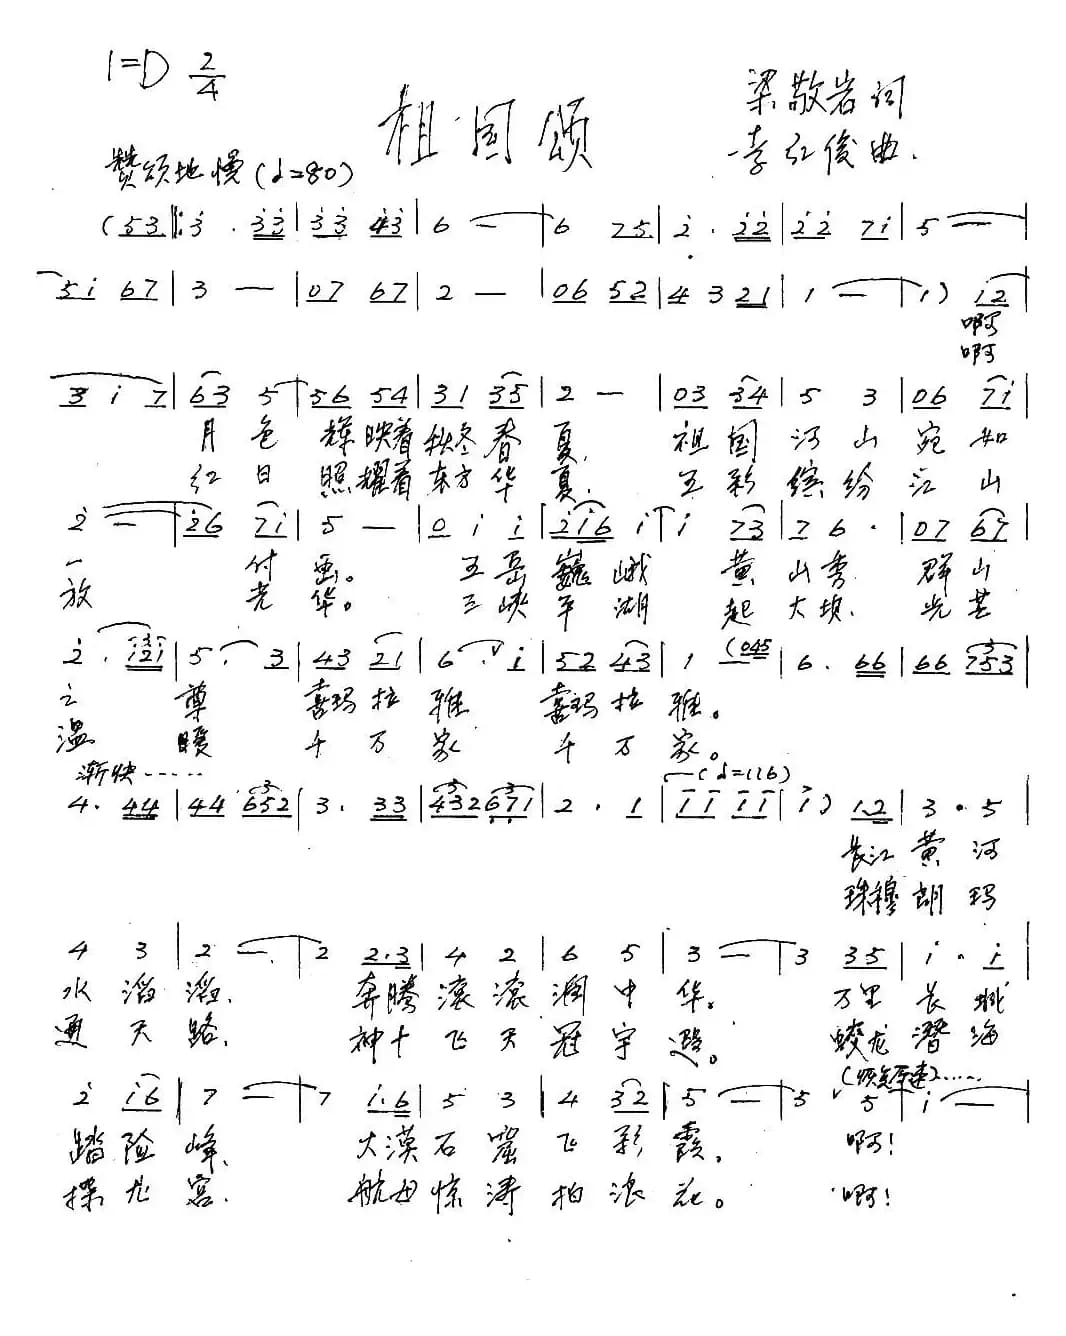 1=D 2/4
祖国颂
梁敬岩词
李红俊曲.
赞颂地慢(d=80)
(53 ‖: 3 . 33 | 33 43 | 6 — | 6 75 | 2 . 22 | 22 7i | 5 — |
5i 67 | 3 — | 07 67 | 2 — | 06 52 | 4 3 21 | 1 — | 1) 12 |
啊
啊
3 i 7 | 63 5 | 56 54 | 31 35 | 2 — | 03 34 | 5 3 | 06 7i |
月色 辉映着秋冬春夏. 祖国河山宛如
红日 照耀着东方华夏. 五彩缤纷江山
2 — | 26 7i | 5 — | 0 i i | 2i6 i | i 73 | 7 6 . | 07 67 |
一 付画。 五岳巍峨 黄山秀. 群山
放 光华。 三峡平湖 起大坝. 光芒
2 . i2i | 5 . 3 | 43 21 | 6 . i | 52 43 | 1 (045 | 6 . 66 | 66 753 |
之 尊 喜玛拉雅 喜玛拉雅。
温 暖 千万家 千万家。
渐快……
4 . 44 | 44 652 | 3 . 33 | 432 671 | 2 . 1 | i i i i | i) 1.2 | 3 . 5 |
(d=116)
长江黄河
珠穆朗玛
4 3 | 2 — | 2 2.3 | 4 2 | 6 5 | 3 — | 3 35 | i . i |
水滔滔. 奔腾滚滚润中华。 万里长城
通天路. 神十飞天冠宇遐。 蛟龙潜海
(恢复原速)……
2 i6 | 7 — | 7 i.6 | 5 3 | 4 32 | 5 — | 5 ∨ 5 | i — |
踏险峰、 大漠石窟飞彩霞. 啊!
探龙宫. 航母惊涛拍浪花。 啊!